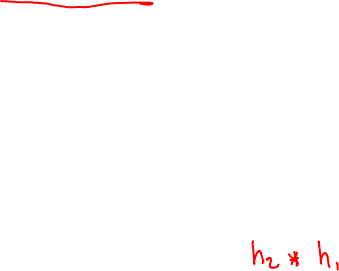 h₂ * h₁